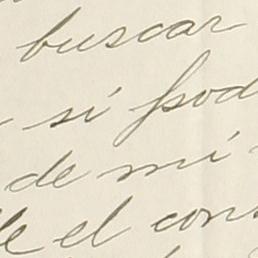 buscar
si pod
de mi
le el cons